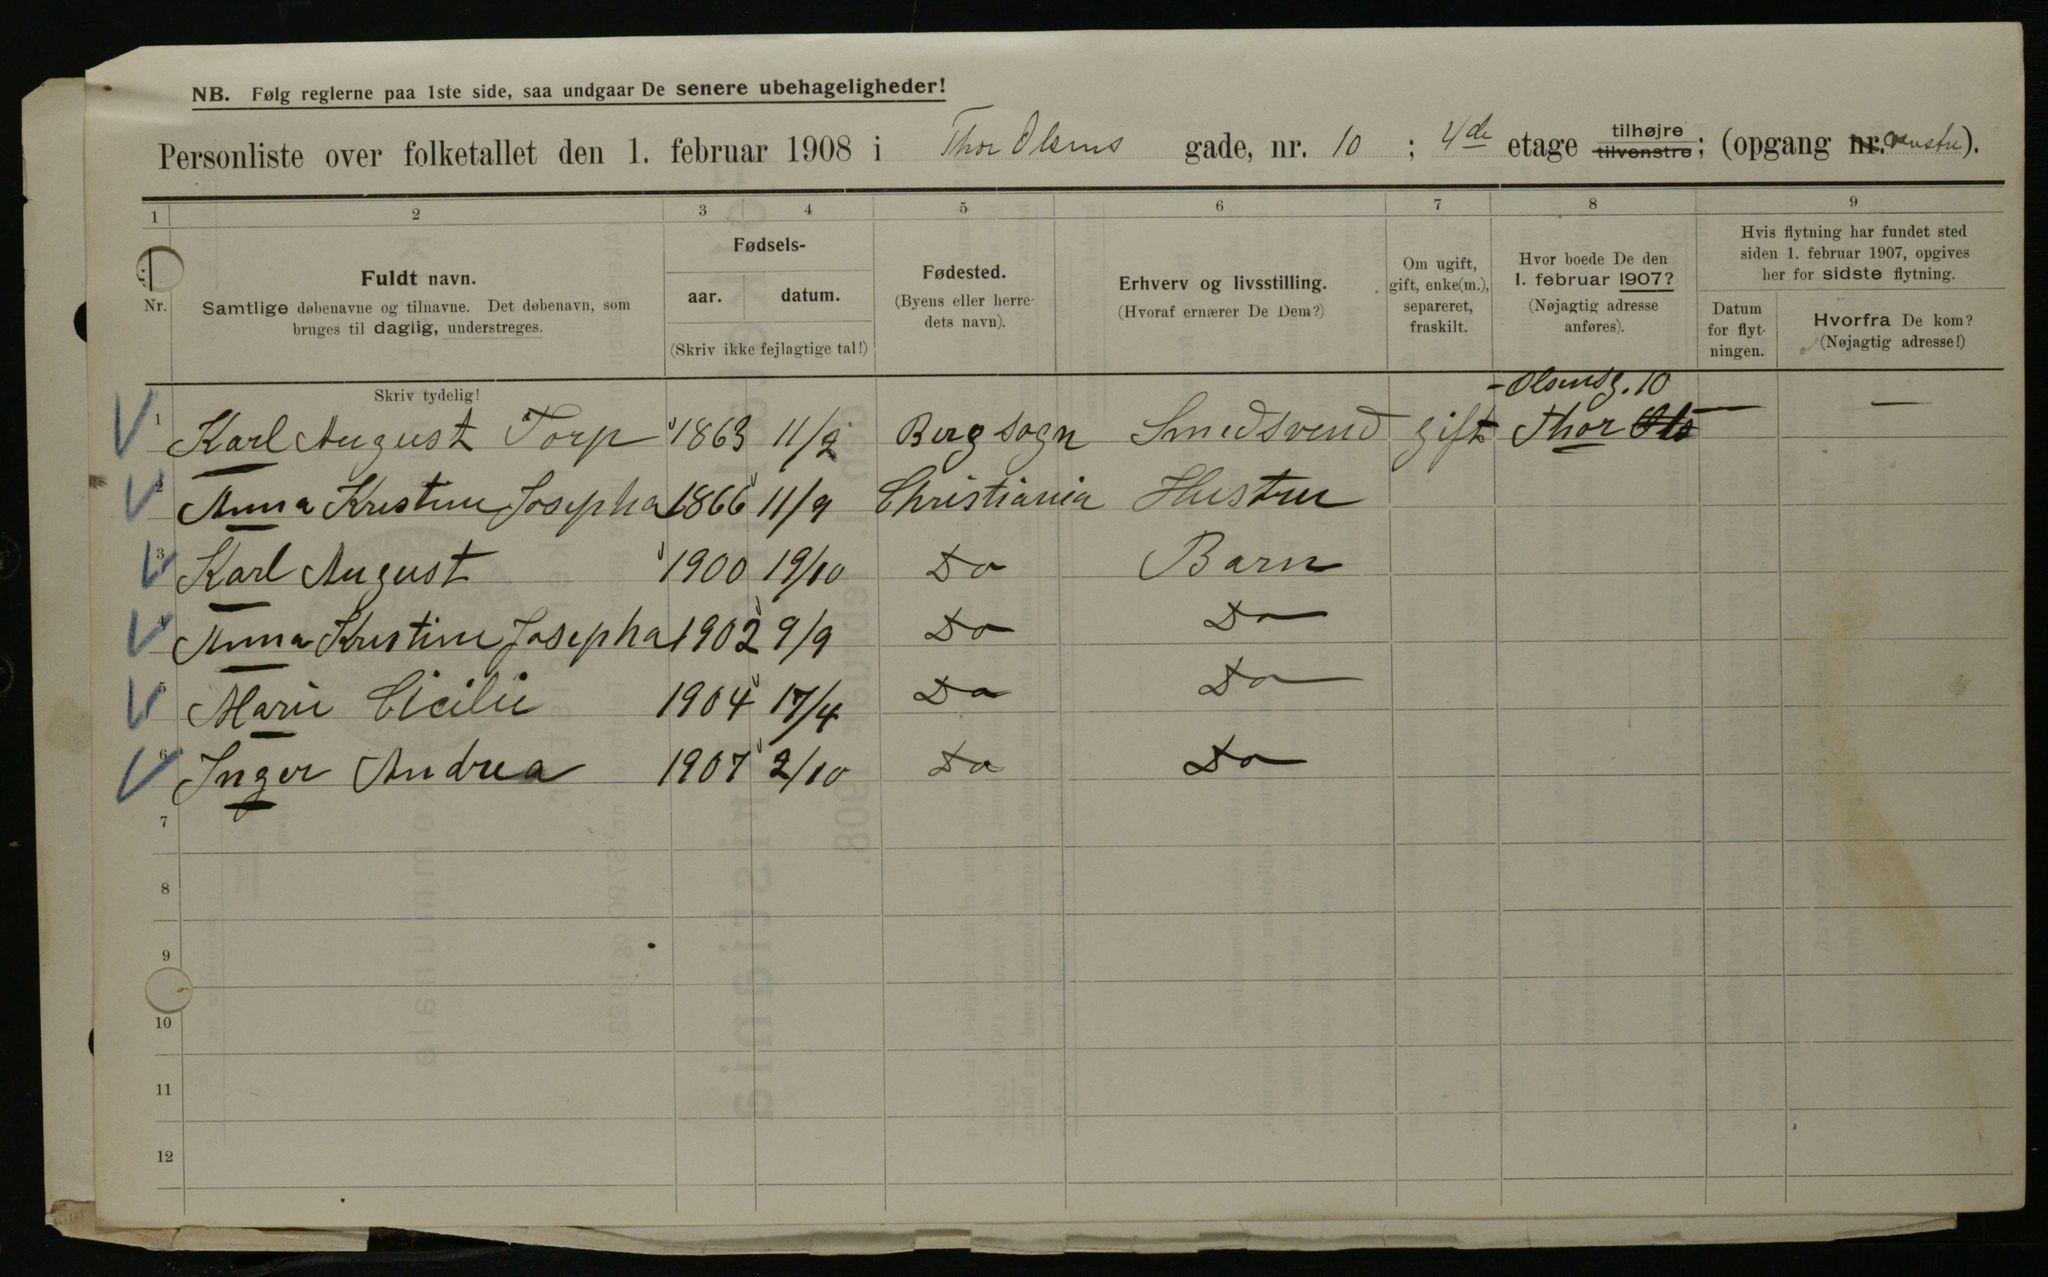 NB. Følg reglerne paa 1ste side, saa undgaar De senere ubehageligheder!
Personliste over folketallet den 1. februar 1908 i Thor Olsens gade, nr. 10 ; 4de etage tilhøjre tilvenstre; (opgang nr. venstre).
1 2 3 4 5 6 7 8 9
Nr.
Fuldt navn.
Samtlige døbenavne og tilnavne. Det døbenavn, som
bruges til daglig, understreges.
Fødsels-
aar. datum.
(Skriv ikke fejlagtige tal!)
Fødested.
(Byens eller herre-
dets navn).
Erhverv og livsstilling.
(Hvoraf ernærer De Dem?)
Om ugift,
gift, enke(m.),
separeret,
fraskilt.
Hvor boede De den
1. februar 1907?
(Nøjagtig adresse
anføres).
Hvis flytning har fundet sted
siden 1. februar 1907, opgives
her for sidste flytning.
Datum
for flyt-
ningen.
Hvorfra De kom?
(Nøjagtig adresse!)
Skriv tydelig!
- Olsensg. 10
1 Karl August Torp 1863 11/2 Berg sogn Smedsvend gift Thor Ols —
2 Anna Kristine Josepha 1866 11/9 Christiania Hustru
3 Karl August 1900 19/10 Do Barn
4 Anna Kristine Josepha 1902 9/9 Do Do
5 Marie Cicilie 1904 17/4 Do Do
6 Inger Andrea 1907 2/10 Do Do
7
8
9
10
11
12